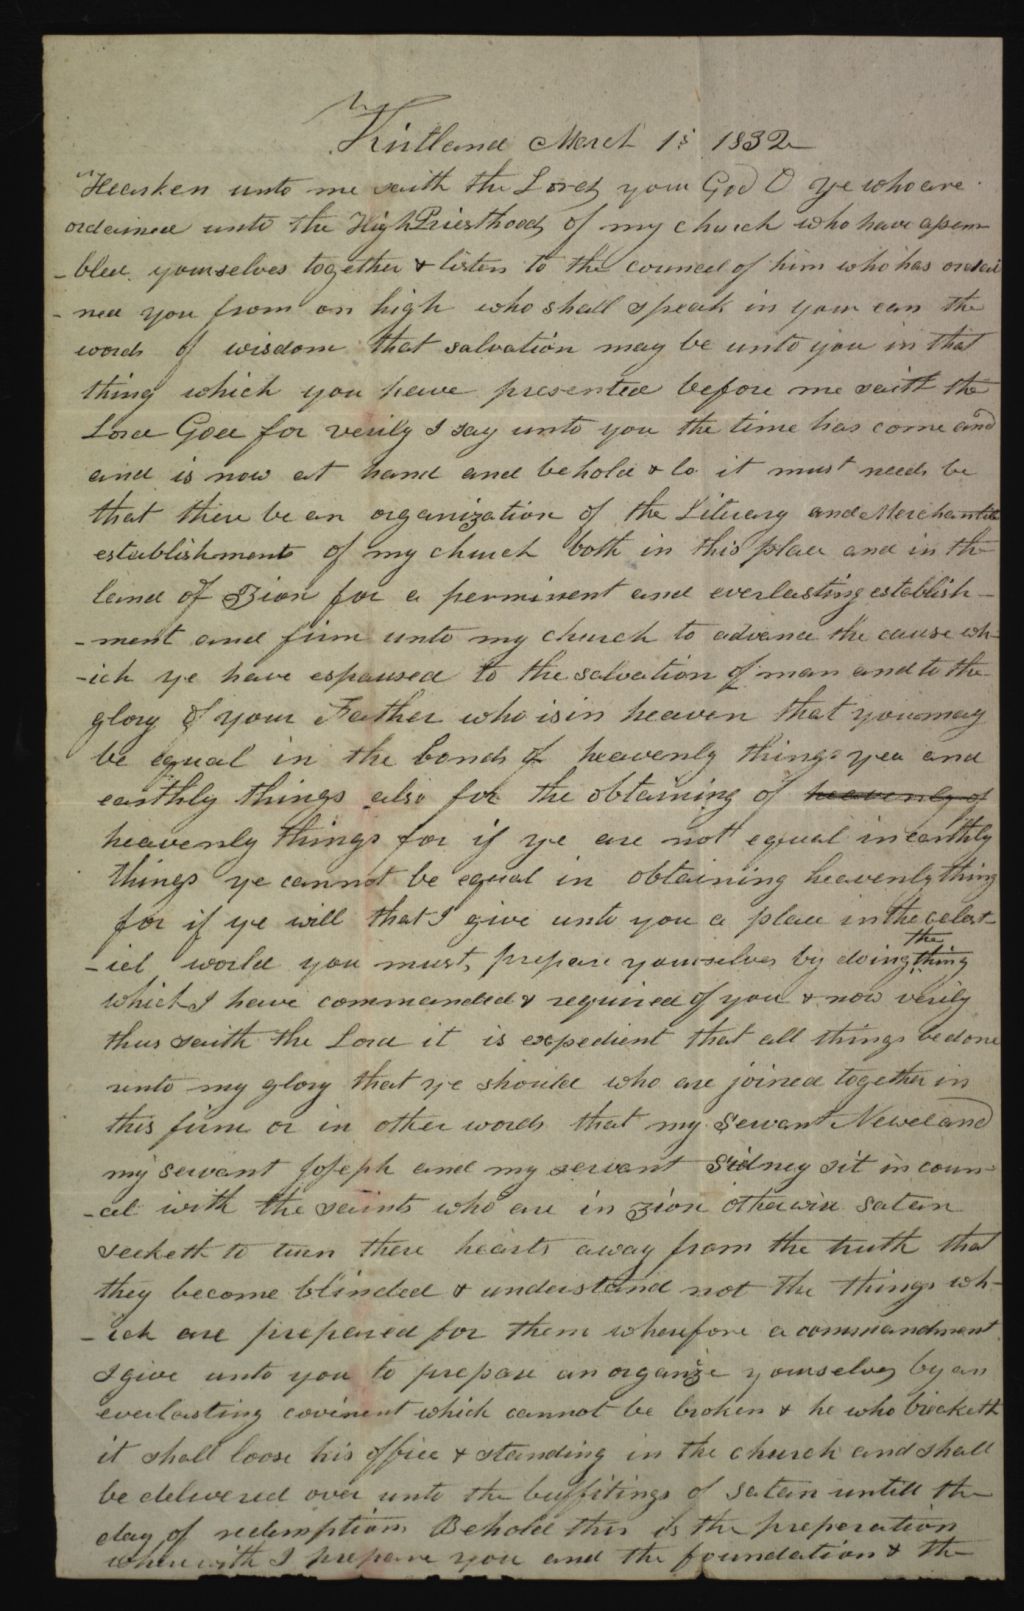 Kirtland March 1s 1832
Hearken unto me saith the Lord your God O ye who are
ordained unto the High Priesthood of my church who have assem
-bled yourselves together & listen to the councel of him who has ordai
-ned you from on high who shall speak in your ears the
words of wisdom that salvation may be unto you in that
thing which you have presented before me saith the
Lord God for verily I say unto you the time has come and
and is now at hand and behold & lo it must needs be
that there be an organization of the Literary and Merchantile
establishments of my church both in this place and in the
land of Zion for a perminent and everlasting establish-
-ment and firm unto my church to advance the cause wh-
-ich ye have espoused to the salvation of man and to the
glory of your Father who is in heaven that you may
be equal in the bonds of heavenly things yea and
earthly things also for the obtaining of heavenly of
heavenly things for if ye are not equal in earthly
things ye cannot be equal in obtaining heavenly thing
for if ye will that I give unto you a place in the celest-
-iel world you must prepare yourselves by doing the thing
which I have commanded & required of you & now verily
thus saith the Lord it is expedient that all things be done
unto my glory that ye should who are joined together in
this firm or in other words that my servant Newel and
my servant Joseph and my servant Sidney sit in coun-
-cel with the saints who are in Zion otherwise satan
seeketh to turn there hearts away from the truth that
they become blinded & understand not the things wh-
-ich are prepared for them wherefore a commandment
I give unto you to prepare an organize yourselves by an
everlasting covinent which cannot be broken & he who breaketh
it shall loose his office & standing in the church and shall
be delivered over unto the buffitings of satan untill the
day of redemption Behold this is the preperation
wherewith I prepare you and the foundation & the